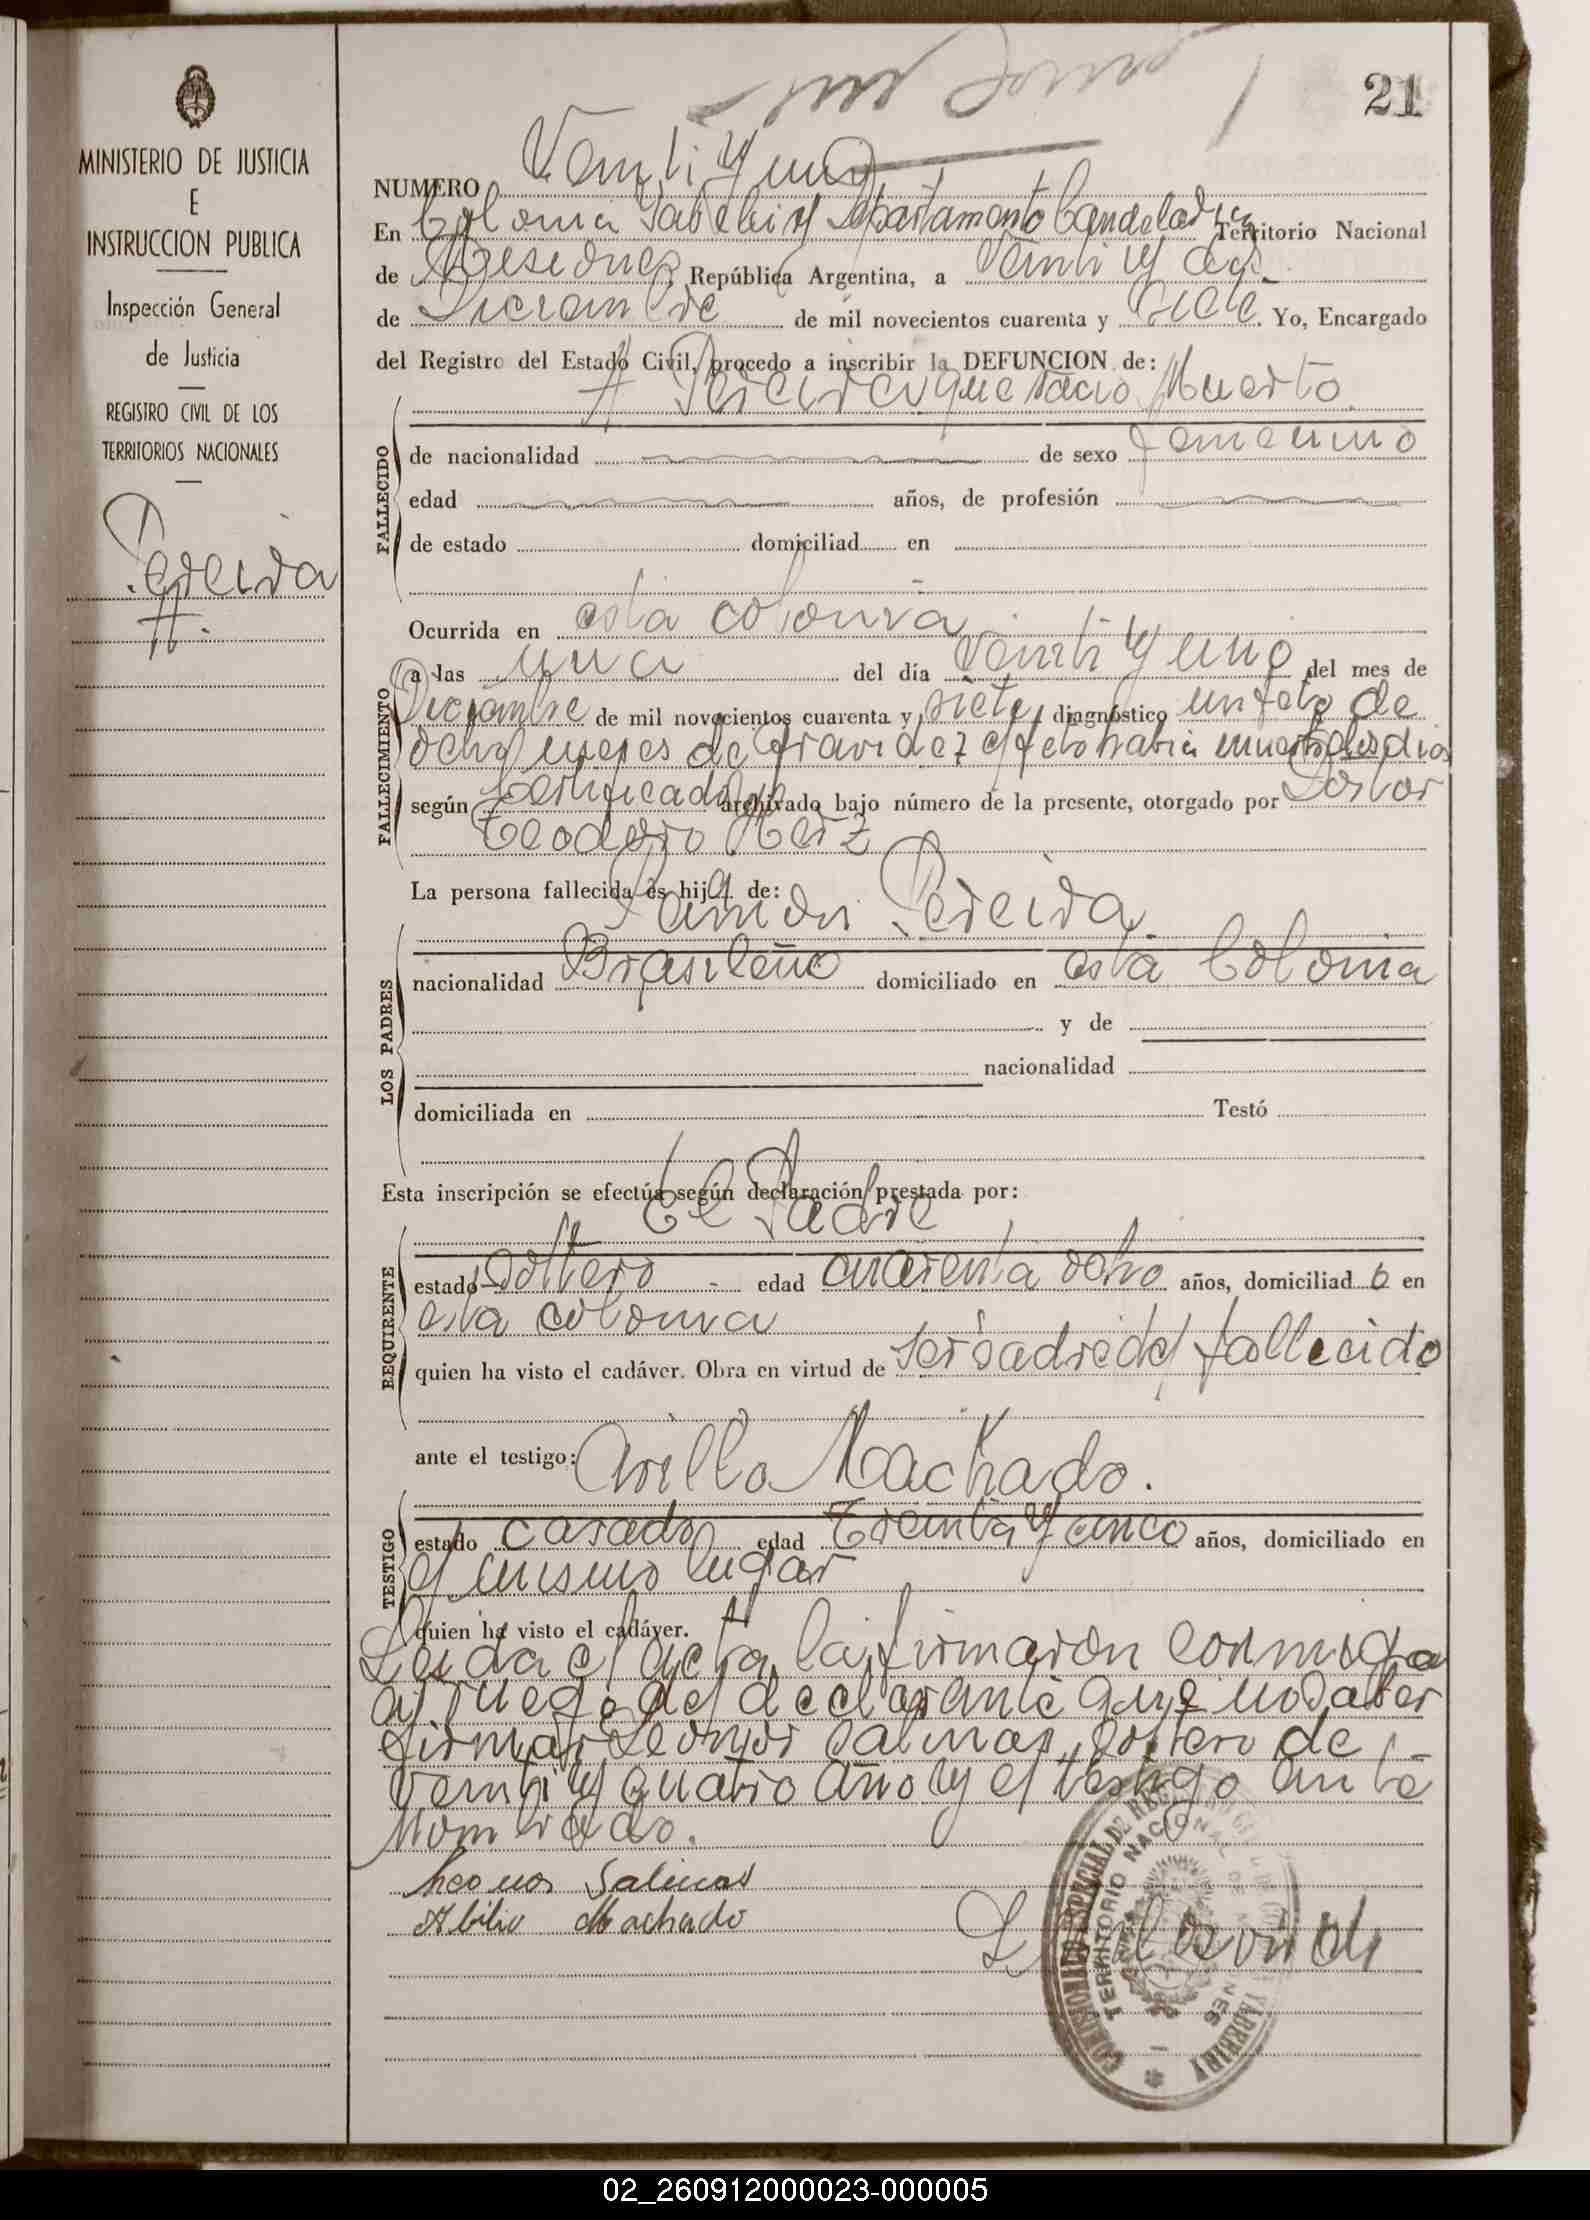 21
MINISTERIO DE JUSTICIA
E
INSTRUCCION PUBLICA
Inspección General
de Justicia
REGISTRO CIVIL DE LOS
TERRITORIOS NACIONALES
Pereira
H.
NUMERO Veinti y uno
En Colonia Departamento Candelaria Territorio Nacional
de Misiones República Argentina, a Veinti y dos
de Diciembre de mil novecientos cuarenta y siete. Yo, Encargado
del Registro del Estado Civil, procedo a inscribir la DEFUNCION de:
H Pereira que nacio Muerto.
FALLECIDO
de nacionalidad de sexo femenino
edad años, de profesión
de estado domiciliad en
Ocurrida en esta colonia
FALLECIMIENTO
a las una del día Veinti y uno del mes de
Diciembre de mil novecientos cuarenta y siete, diagnóstico un feto de
ocho meses de gravidez el feto habia muerto dias
según Certificado archivado bajo número de la presente, otorgado por Doctor
Teodoro
La persona fallecida es hija de:
LOS PADRES
Ramon Pereira
nacionalidad Brasileño domiciliado en esta Colonia
y de
nacionalidad
domiciliada en Testó
Esta inscripción se efectúa según declaración prestada por:
El Padre
REQUIRENTE
estado Soltero edad cuarenta ocho años, domiciliad o en
esta colonia
quien ha visto el cadáver. Obra en virtud de ser padre del fallecido
ante el testigo: Avilio Machado.
TESTIGO
estado casado edad Treinta y cinco años, domiciliado en
el mismo lugar
quien ha visto el cadáver.
Leida el acta, la firmaron conmigo
a ruego del declarante que no saber
firmar Leonor Salinas, soltero de
veinti y quatro año y el testigo ante
nombrado.
Leonor Salinas
Abilio Machado
COMISIONADO ESPECIAL DE
TERRITORIO NACIONAL DE MISIONES
02_260912000023-000005